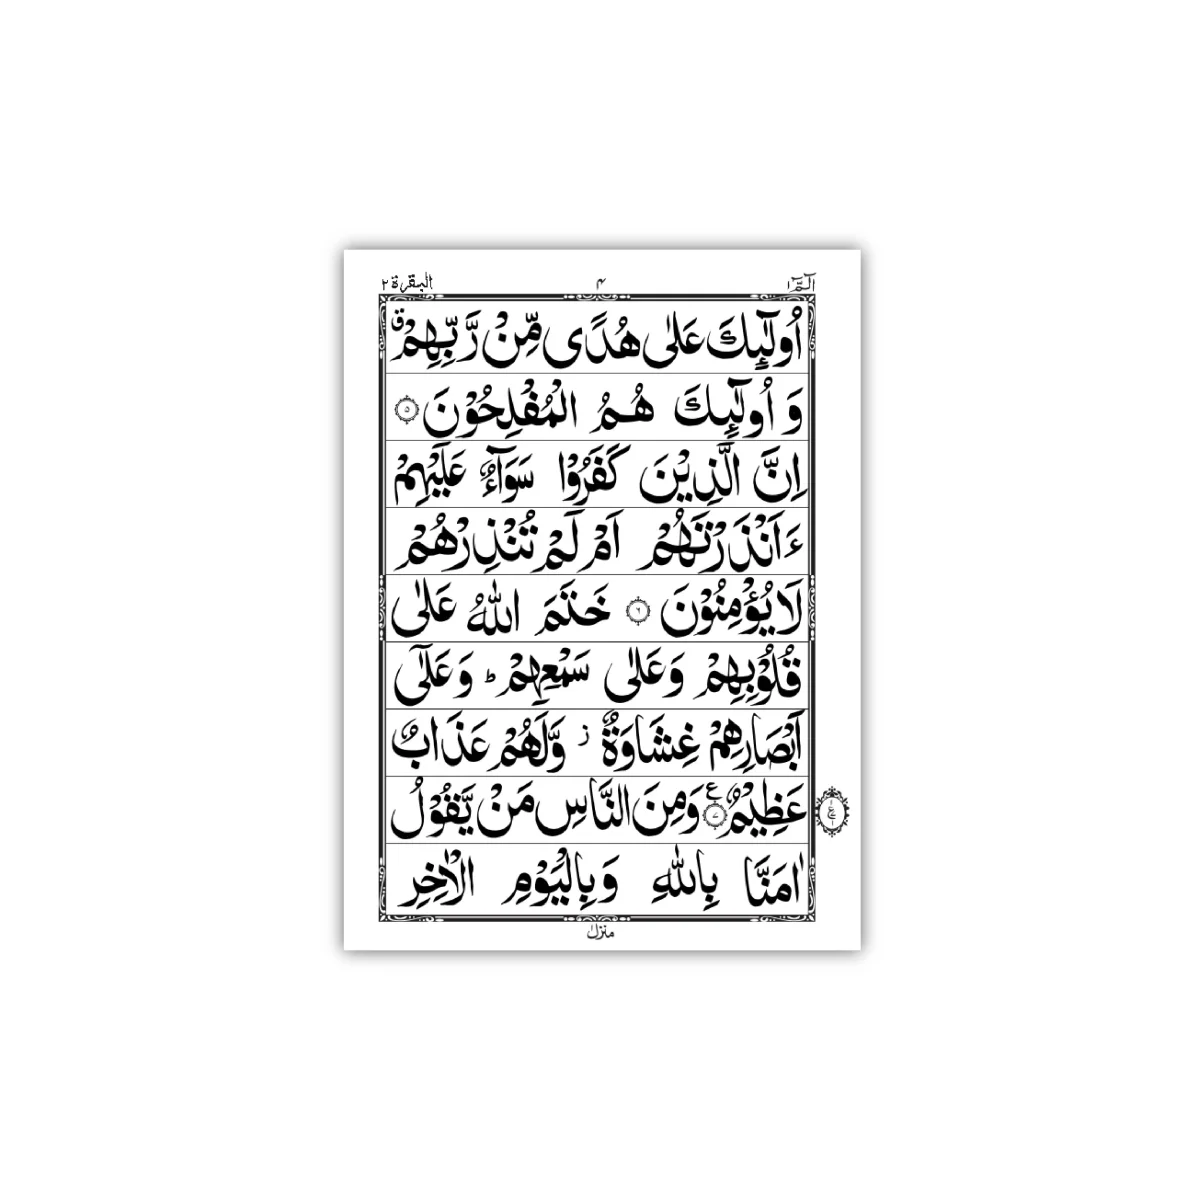 الٓمّٓ ١ ۴ البقرة ٢
اُولٰٓئِكَ عَلٰى هُدًى مِّنْ رَّبِّهِمْ ق
وَ اُولٰٓئِكَ هُمُ الْمُفْلِحُوْنَ ۵
اِنَّ الَّذِيْنَ كَفَرُوْا سَوَآءٌ عَلَيْهِمْ
ءَاَنْذَرْتَهُمْ اَمْ لَمْ تُنْذِرْهُمْ
لَا يُؤْمِنُوْنَ ٦ خَتَمَ اللّٰهُ عَلٰى
قُلُوْبِهِمْ وَعَلٰى سَمْعِهِمْ ط وَعَلٰٓى
اَبْصَارِهِمْ غِشَاوَةٌ ز وَّلَهُمْ عَذَابٌ
عَظِيْمٌ ٧ ع وَمِنَ النَّاسِ مَنْ يَّقُوْلُ
اٰمَنَّا بِاللّٰهِ وَبِالْيَوْمِ الْاٰخِرِ
منزل ١